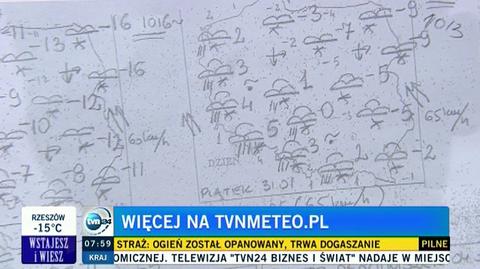 -11 -16 1016~ 2 -3 -4 -9 1013
-13 -2 -7
-16 2 3 -5
-9 -12 4 1 -5 65 km/h
-10 -12 60 km/h 5 -0
-7 -8 -11 5 3 -2
DZIEŃ
PIĄTEK 31.01
RZESZÓW
-15°C
WIĘCEJ NA TVNMETEO.PL
tvn24
WSTAJESZ
i WIESZ
07:59
STRAŻ: OGIEŃ ZOSTAŁ OPANOWANY, TRWA DOGASZANIE
PILNE
KRAJ
OMICZNEJ. TELEWIZJA "TVN24 BIZNES I ŚWIAT" NADAJE W MIEJSC